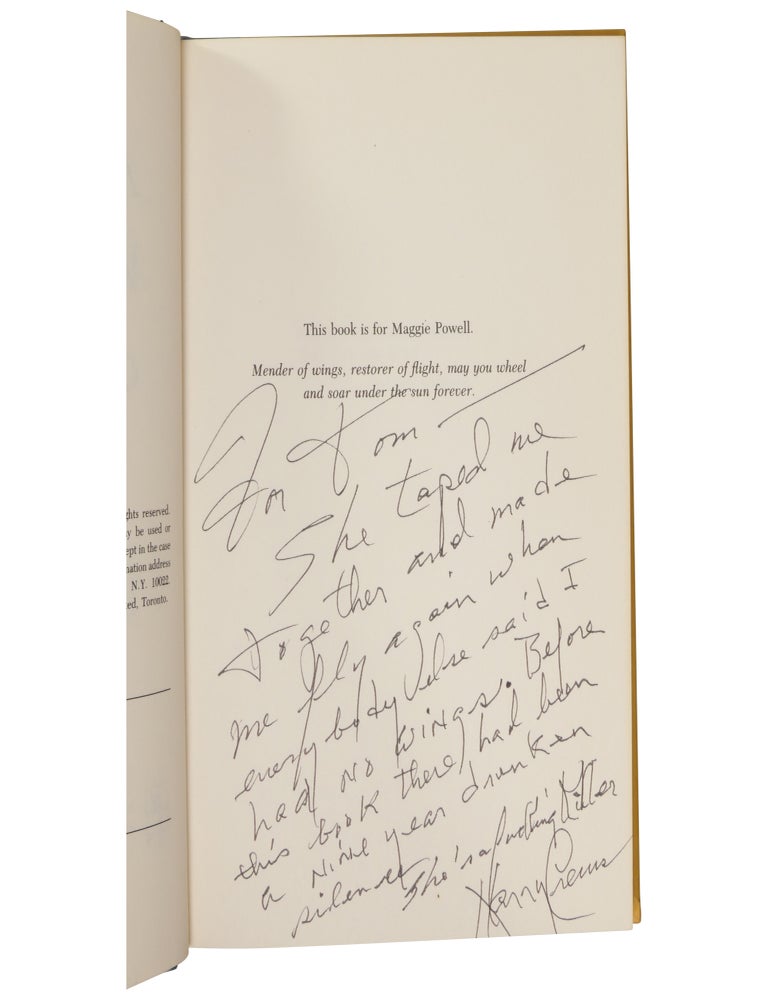 ghts reserved.
y be used or
ept in the case
mation address
N.Y. 10022.
ed, Toronto.
This book is for Maggie Powell.
Mender of wings, restorer of flight, may you wheel
and soar under the sun forever.
For Tom —
She taped me
together and made
me fly again when
everybody else said I
had no wings. Before
this book there had been
a nine year drunken
silence. She's a fucking killer
Harry Crews